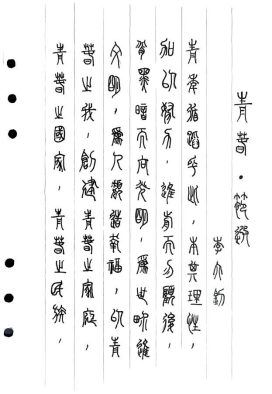 青春·節選
李大釗
青年循蹈乎此,本其理性,
加以努力,進前而勿顧後,
背黑暗而向光明,爲世界進
文明,爲人類造幸福,以青
春之我,創建青春之家庭,
青春之國家,青春之民族,